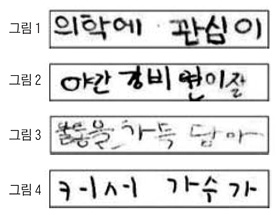 그림 1 의학에 관심이
그림 2 야간 경비 면이잘
그림 3 불통을 가득 담아
그림 4 커서 가수가